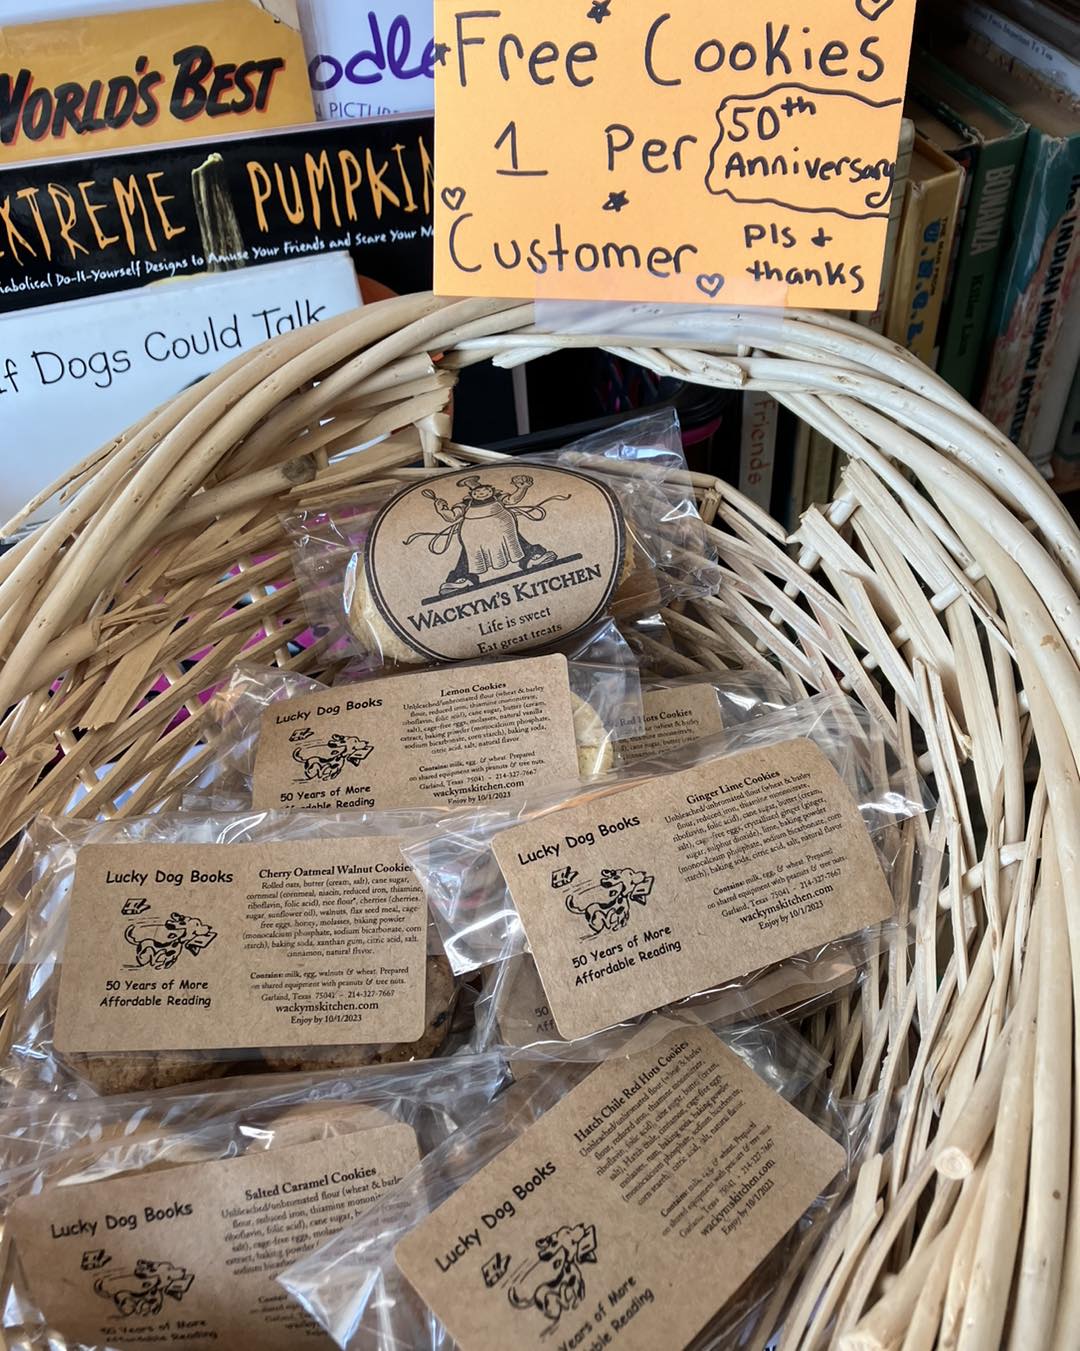 WORLD'S BEST
odle
N PICTU
EXTREME PUMPKIN
iabolical Do-It-Yourself Designs to Amuse Your Friends and Scare Your N
If Dogs Could Talk
Free Cookies
1 Per
50th
Anniversary
Customer
Pls +
thanks
BONANZA
the INDIAN MUMMY MYSTERY
friends
WACKYM'S KITCHEN
Life is sweet
Eat great treats
Lucky Dog Books
50 Years of More
Affordable Reading
Lemon Cookies
Unbleached/unbromated flour (wheat & barley
flour, reduced iron, thiamine mononitrate,
riboflavin, folic acid), cane sugar, butter (cream,
salt), cage-free eggs, molasses, natural vanilla
extract, baking powder (monocalcium phosphate,
sodium bicarbonate, corn starch), baking soda,
citric acid, salt, natural flavor.
Contains: milk, egg, & wheat. Prepared
on shared equipment with peanuts & tree nuts.
Garland, Texas 75041 ~ 214-327-7667
wackymskitchen.com
Enjoy by 10/1/2023
Red Hots Cookies
Lucky Dog Books
50 Years of More
Affordable Reading
Ginger Lime Cookies
Unbleached/unbromated flour (wheat & barley
flour, reduced iron, thiamine mononitrate,
riboflavin, folic acid), cane sugar, butter (cream,
salt), cage-free eggs, crystallized ginger (ginger,
sugar, sulphur dioxide), lime, baking powder
(monocalcium phosphate, sodium bicarbonate, corn
starch), baking soda, citric acid, salt, natural flavor
Contains: milk, egg, & wheat. Prepared
on shared equipment with peanuts & tree nuts.
Garland, Texas 75041 ~ 214-327-7667
wackymskitchen.com
Enjoy by 10/1/2023
Lucky Dog Books
50 Years of More
Affordable Reading
Cherry Oatmeal Walnut Cookies
Rolled oats, butter (cream, salt), cane sugar,
cornmeal (cornmeal, niacin, reduced iron, thiamine,
riboflavin, folic acid), rice flour*, cherries (cherries,
sugar, sunflower oil), walnuts, flax seed meal, cage-
free eggs, honey, molasses, baking powder
(monocalcium phosphate, sodium bicarbonate, corn
starch), baking soda, xanthan gum, citric acid, salt,
cinnamon, natural flavor.
Contains: milk, egg, walnuts & wheat. Prepared
on shared equipment with peanuts & tree nuts.
Garland, Texas 75041 ~ 214-327-7667
wackymskitchen.com
Enjoy by 10/1/2023
Lucky Dog Books
50 Years of More
Affordable Reading
Salted Caramel Cookies
Unbleached/unbromated flour (wheat & barley
flour, reduced iron, thiamine
riboflavin, folic acid), cane sugar,
salt), cage-free eggs,
extract, baking powder
sodium
Lucky Dog Books
Years of More
Affordable Reading
Hatch Chile Red Hots Cookies
Unbleached/unbromated flour (wheat & barley
flour, reduced iron, thiamine mononitrate,
riboflavin, folic acid), cane sugar, butter (cream,
Contains: milk, egg, & wheat. Prepared
on shared equipment with peanuts & tree nuts.
Garland, Texas 75041 ~ 214-327-7667
wackymskitchen.com
Enjoy by 10/1/2023